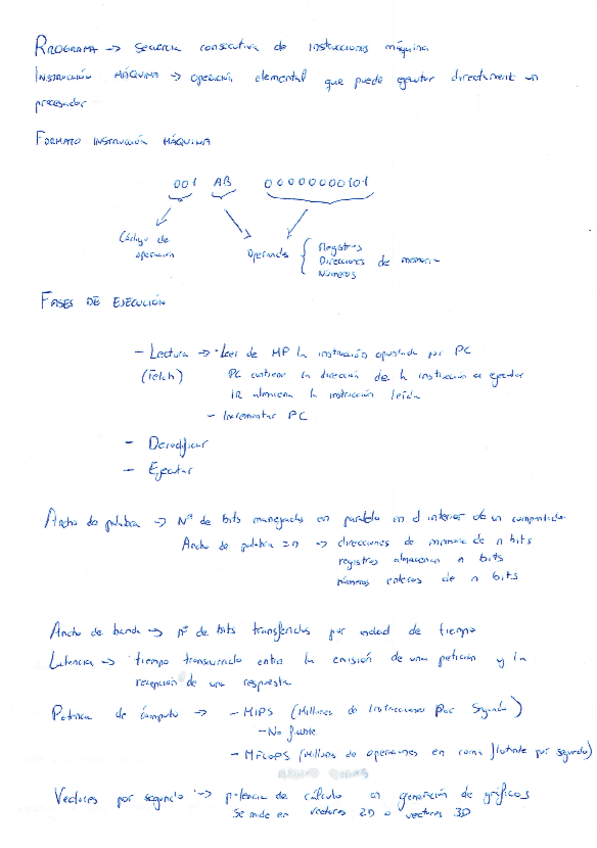 PROGRAMA → Secuencia consecutiva de instrucciones máquina
INSTRUCCIÓN MÁQUINA → operación elemental que puede ejecutar directament un
procesador
FORMATO INSTRUCCIÓN MÁQUINA
001 AB 00000000101
Código de operación
Operandos { Registros
Direcciones de memoria
Números
FASES DE EJECUCIÓN
- Lectura → · Leer de MP la instrucción apuntada por PC
(Fetch) PC contiene la dirección de la instrucción a ejecutar
IR almacena la instrucción leída
- Incrementar PC
- Decodificar
- Ejecutar
Ancho de palabra → Nº de bits manejados en paralelo en el interior de un computador
Ancho de palabra = n → direcciones de memoria de n bits
registros almacenan n bits
números enteros de n bits
Ancho de banda → nº de bits transferidos por unidad de tiempo
Latencia → tiempo transcurrido entre la emisión de una petición y la
recepción de una respuesta
Potencia de cómputo → - MIPS (Millones de Instrucciones Por Segundo)
- No fiable
- MFLOPS (Millones de operaciones en coma flotante por segundo)
Vectores por segundo → potencia de cálculo en generación de gráficos
Se mide en vectores 2D o vectores 3D